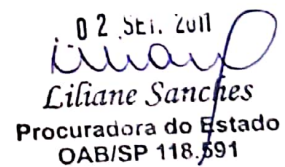 02 SET. 2011
Liliane Sanches
Procuradora do Estado
OAB/SP 118.591